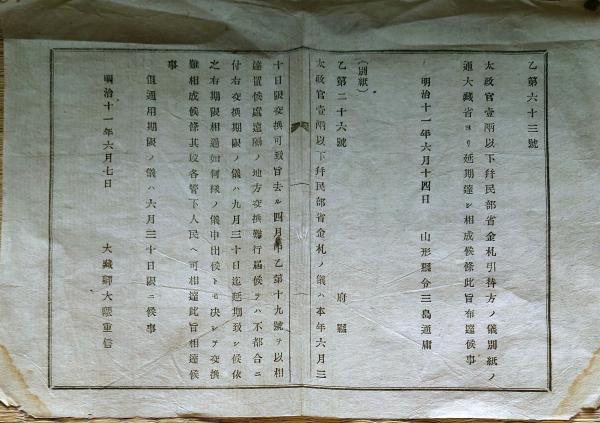 乙第六十三號
太政官壹兩以下幷民部省金札引持方ノ儀別紙ノ
通大藏省ヨリ延期達シ相成候條此旨布達候事
明治十一年六月十四日　山形縣令三島通庸
(別紙)
乙第二十六號　府縣
太政官壹兩以下幷民部省金札ノ儀ハ本年六月三
十日限交換可致旨去ル四月中乙第十九號ヲ以相
達置候處遠隔ノ地方交換難行屆候テハ不都合ニ
付右交換期限ノ儀ハ九月三十日迄延期致シ候依
之右期限相過如何樣ノ儀申出候トモ决シテ交換
難相成候條其段各管下人民ヘ可相達此旨相達候
事
但通用期限ノ儀ハ六月三十日限ニ候事
明治十一年六月七日　大藏卿大隈重信